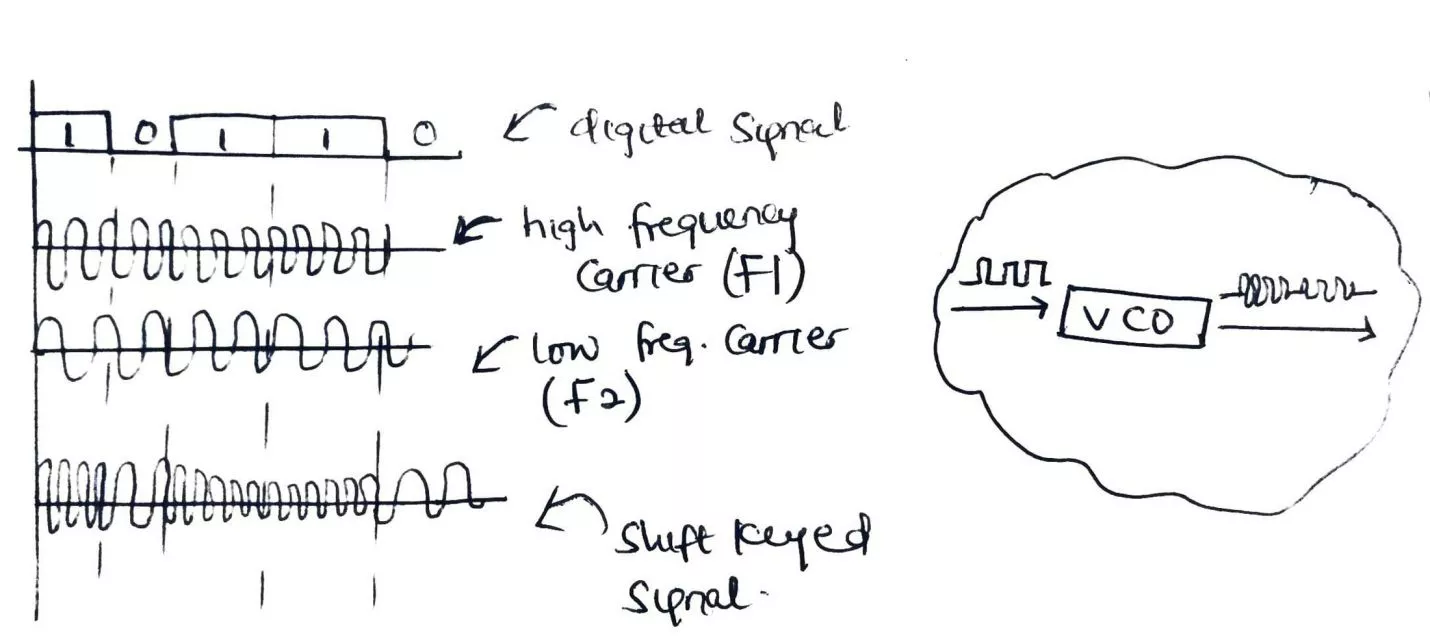 1 0 1 1 0
digital Signal
high frequency
Carrier (F1)
low freq. Carrier
(F2)
Shift Keyed
Signal.
VCO